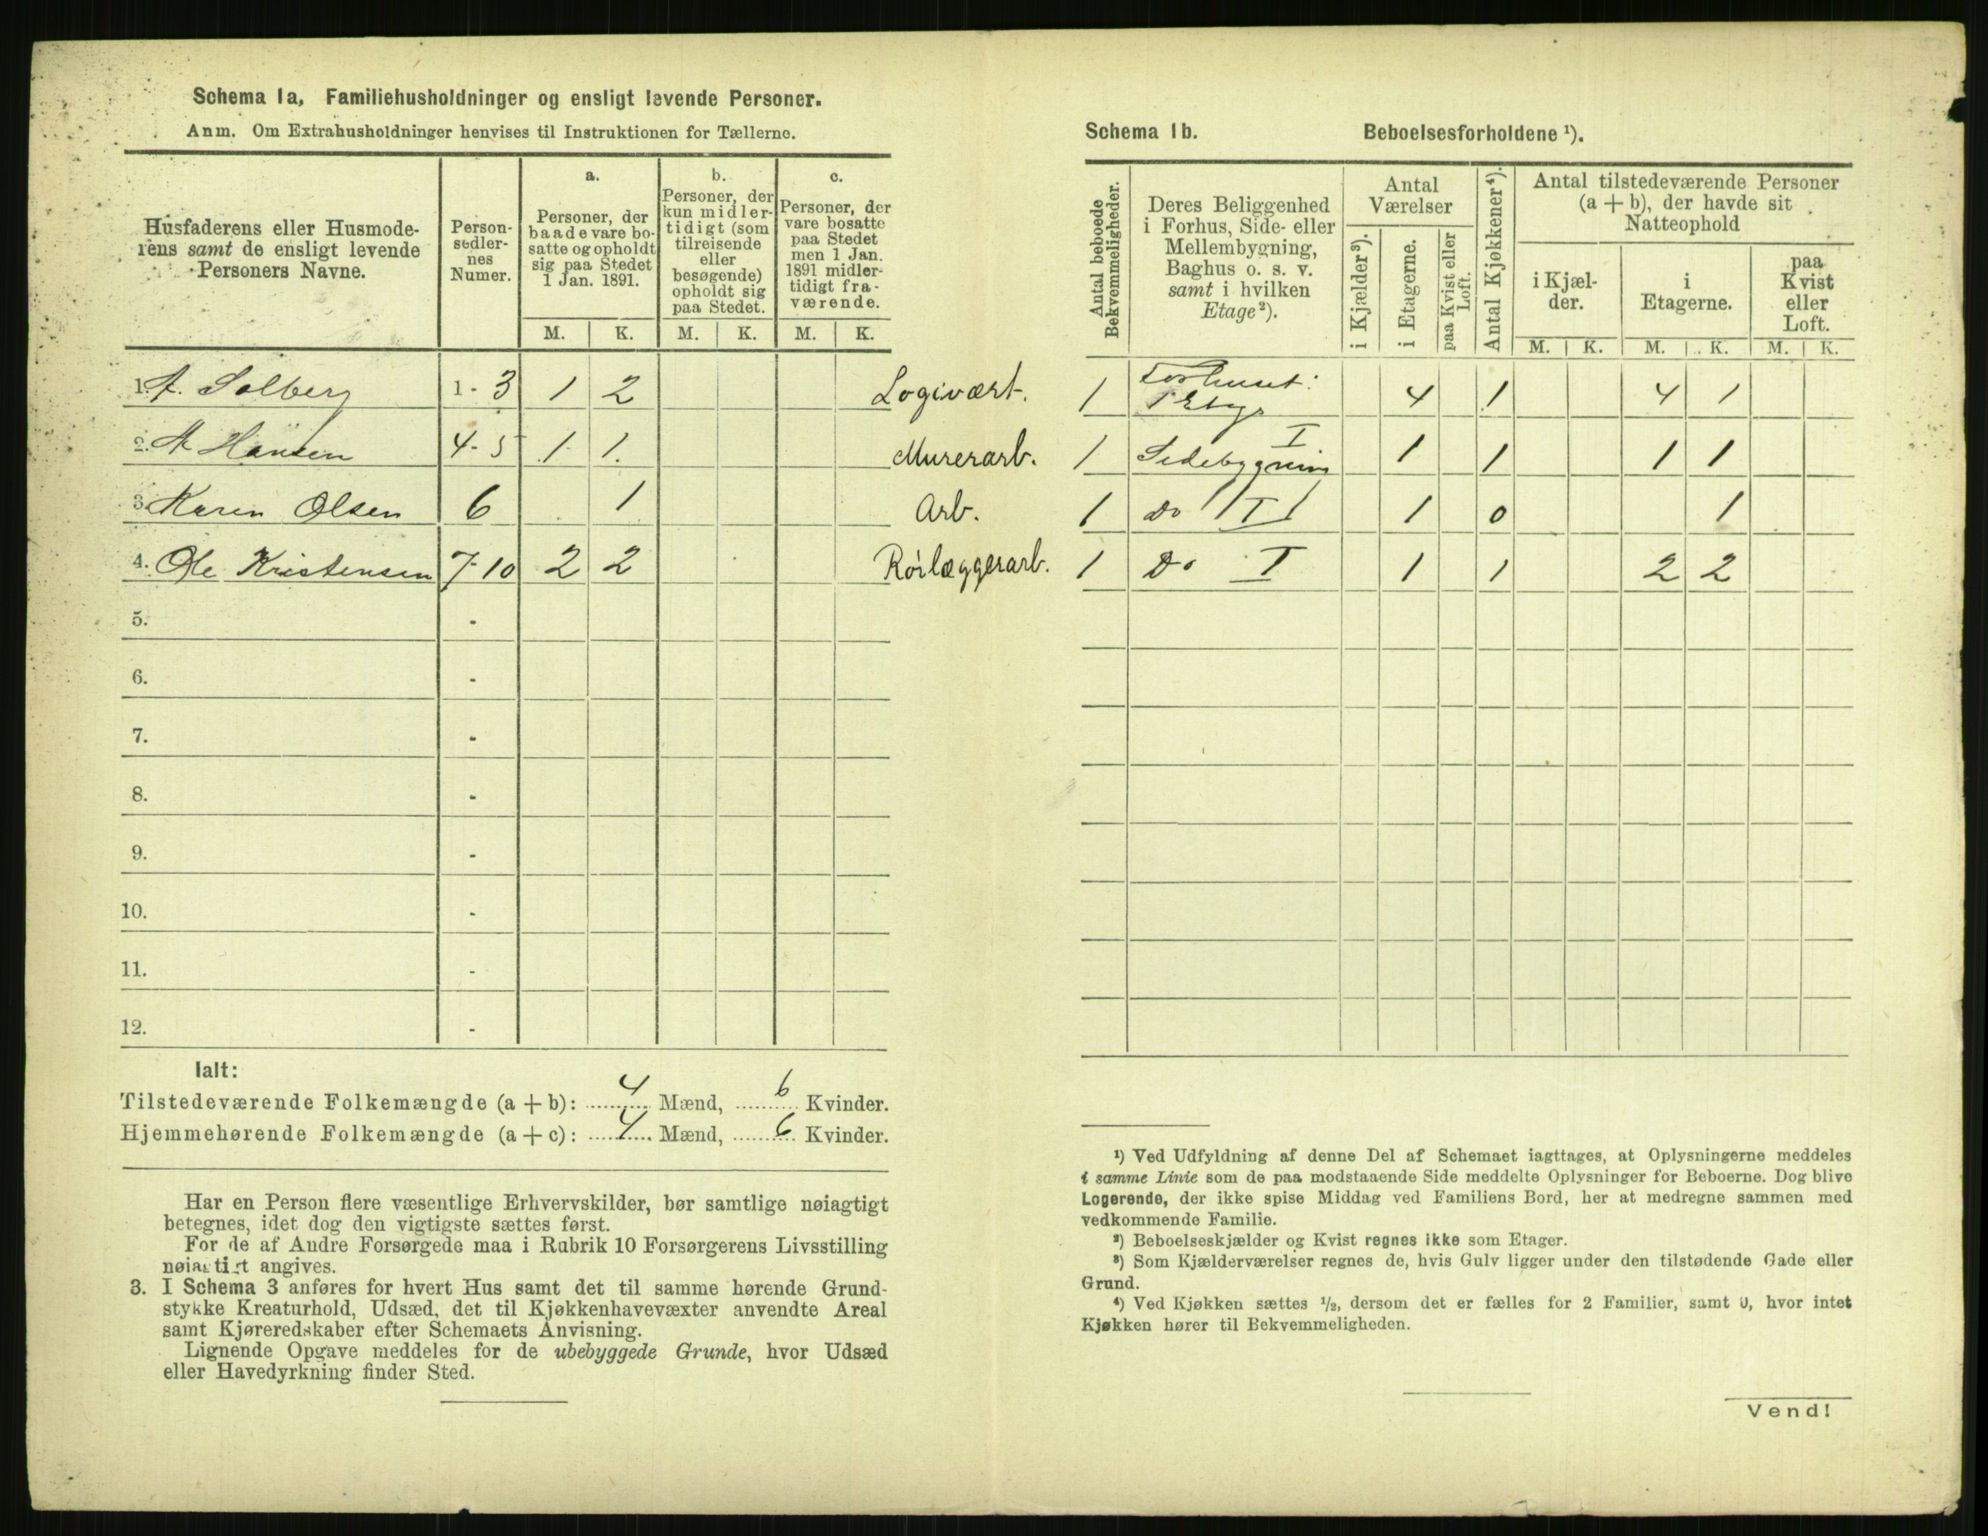 Schema 1a, Familiehusholdninger og ensligt levende Personer.
Anm. Om Extrahusholdninger henvises til Instruktionen for Tællerne.
Husfaderens eller Husmoderens samt de ensligt levende Personers Navne.
Personsedlernes Numer.
a.
Personer, der baade vare bosatte og opholdt sig paa Stedet 1 Jan. 1891.
b.
Personer, der kun midlertidigt (som tilreisende eller besøgende) opholdt sig paa Stedet.
c.
Personer, der vare bosatte paa Stedet men 1 Jan. 1891 midlertidigt fraværende.
M. K. M. K. M. K.
1. A. Solberg 1 - 3 1 2 Logivært.
2. A Hansen 4 - 5 1 1. Murerarb.
3. Karen Olsen 6 1 Arb.
4. Ole Kristensen 7-10 2 2 Rörlæggerarb.
5. -
6. -
7. -
8. -
9. -
10. -
11. -
12. -
Ialt:
Tilstedeværende Folkemængde (a + b): 4 Mænd, 6 Kvinder.
Hjemmehørende Folkemængde (a + c): 4 Mænd, 6 Kvinder.
Har en Person flere væsentlige Erhvervskilder, bør samtlige nøiagtigt
betegnes, idet dog den vigtigste sættes først.
For de af Andre Forsørgede maa i Rubrik 10 Forsørgerens Livsstilling
nøiagtigt angives.
3. I Schema 3 anføres for hvert Hus samt det til samme hørende Grund-
stykke Kreaturhold, Udsæd, det til Kjøkkenhavevæxter anvendte Areal
samt Kjøreredskaber efter Schemaets Anvisning.
Lignende Opgave meddeles for de ubebyggede Grunde, hvor Udsæd
eller Havedyrkning finder Sted.
Schema 1b. Beboelsesforholdene ¹).
Antal beboede Bekvemmeligheder.
Deres Beliggenhed i Forhus, Side- eller Mellembygning, Baghus o. s. v. samt i hvilken Etage ²).
Antal Værelser
i Kjælder ³).
i Etagerne.
paa Kvist eller Loft.
Antal Kjøkkener ⁴).
Antal tilstedeværende Personer (a + b), der havde sit Natteophold
i Kjælder.
i Etagerne.
paa Kvist eller Loft.
M. K. M. K. M. K.
1 Forhuset: 1 Etage 4 1 4 1
1 Sidebygning I 1 1 1 1
1 Do I 1 0 1
1 Do I 1 1 2 2
¹) Ved Udfyldning af denne Del af Schemaet iagttages, at Oplysningerne meddeles
i samme Linie som de paa modstaaende Side meddelte Oplysninger for Beboerne. Dog blive
Logerende, der ikke spise Middag ved Familiens Bord, her at medregne sammen med
vedkommende Familie.
²) Beboelseskjælder og Kvist regnes ikke som Etager.
³) Som Kjælderværelser regnes de, hvis Gulv ligger under den tilstødende Gade eller
Grund.
⁴) Ved Kjøkken sættes ½, dersom det er fælles for 2 Familier, samt 0, hvor intet
Kjøkken hører til Bekvemmeligheden.
Vend!